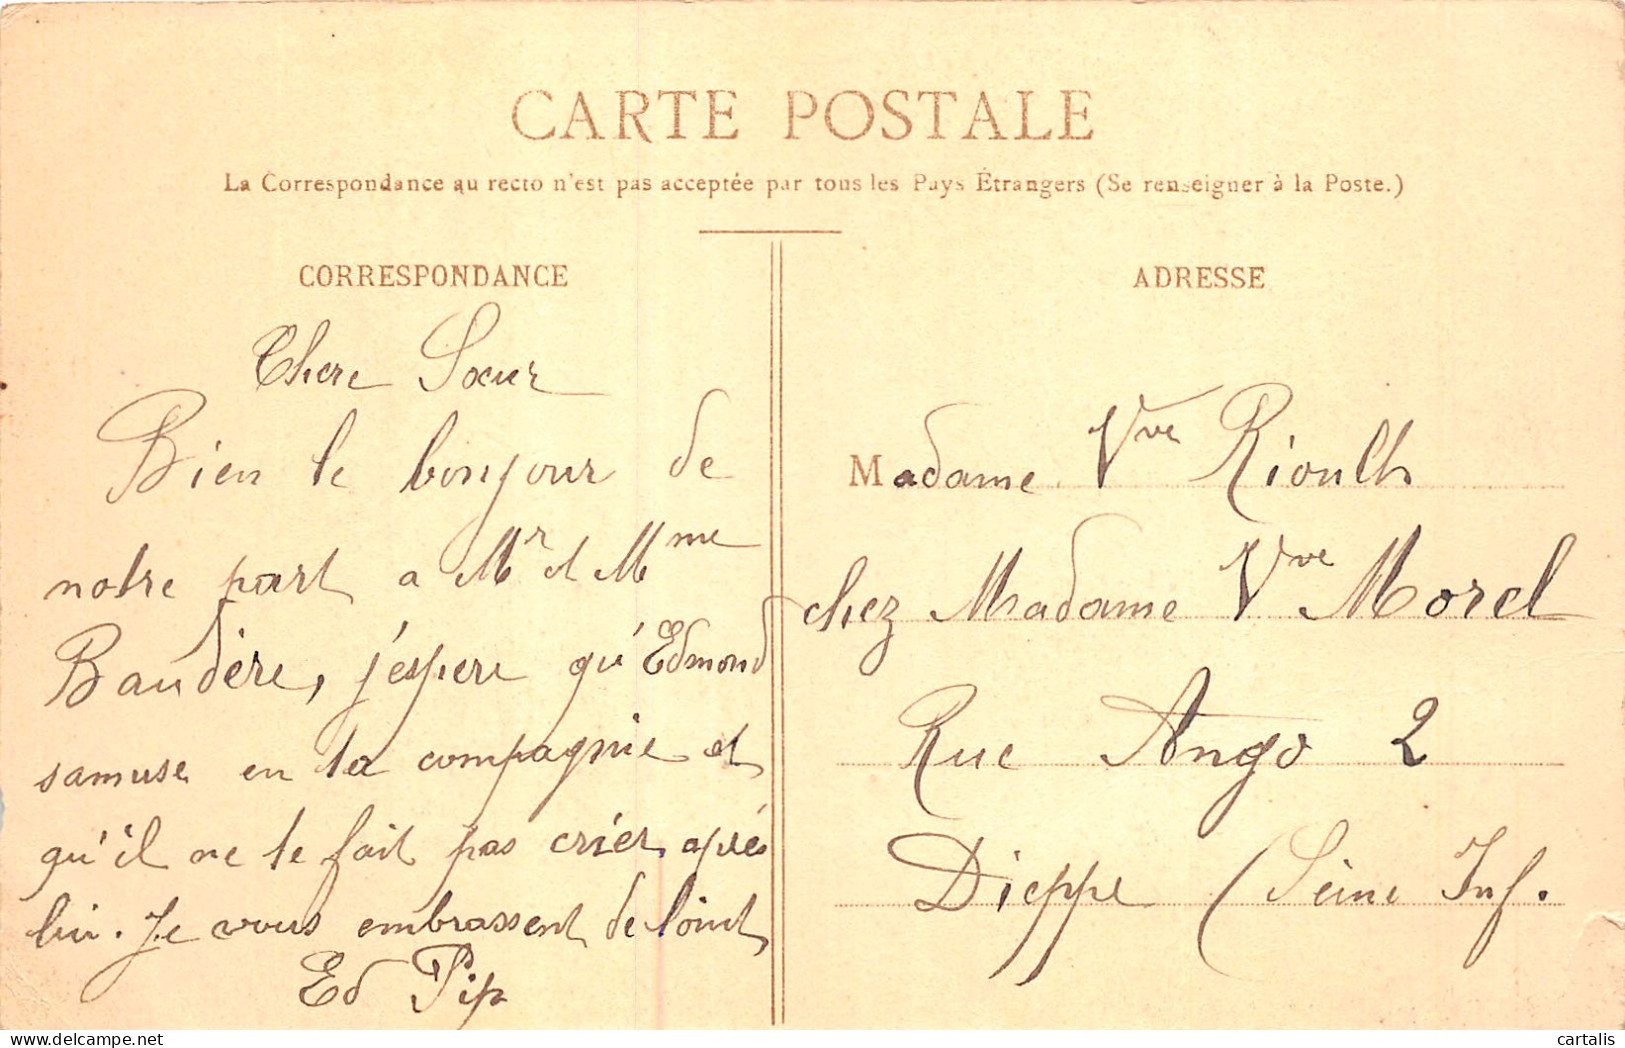 CARTE POSTALE
La Correspondance au recto n'est pas acceptée par tous les Pays Étrangers (Se renseigner à la Poste.)
CORRESPONDANCE
Chere Sœur
Bien le bonjour de
notre part a Mr et Mme
Baudère, j'espere qu'Edmond
samuse en ta compagnie et
qu'il ne te fait pas crier aprés
lui. Je vous embrassent de loint
Ed Pip
ADRESSE
Madame Vve Rioult
chez Madame Vve Morel
Rue Ango 2
Dieppe (Seine Inf.
cartalis